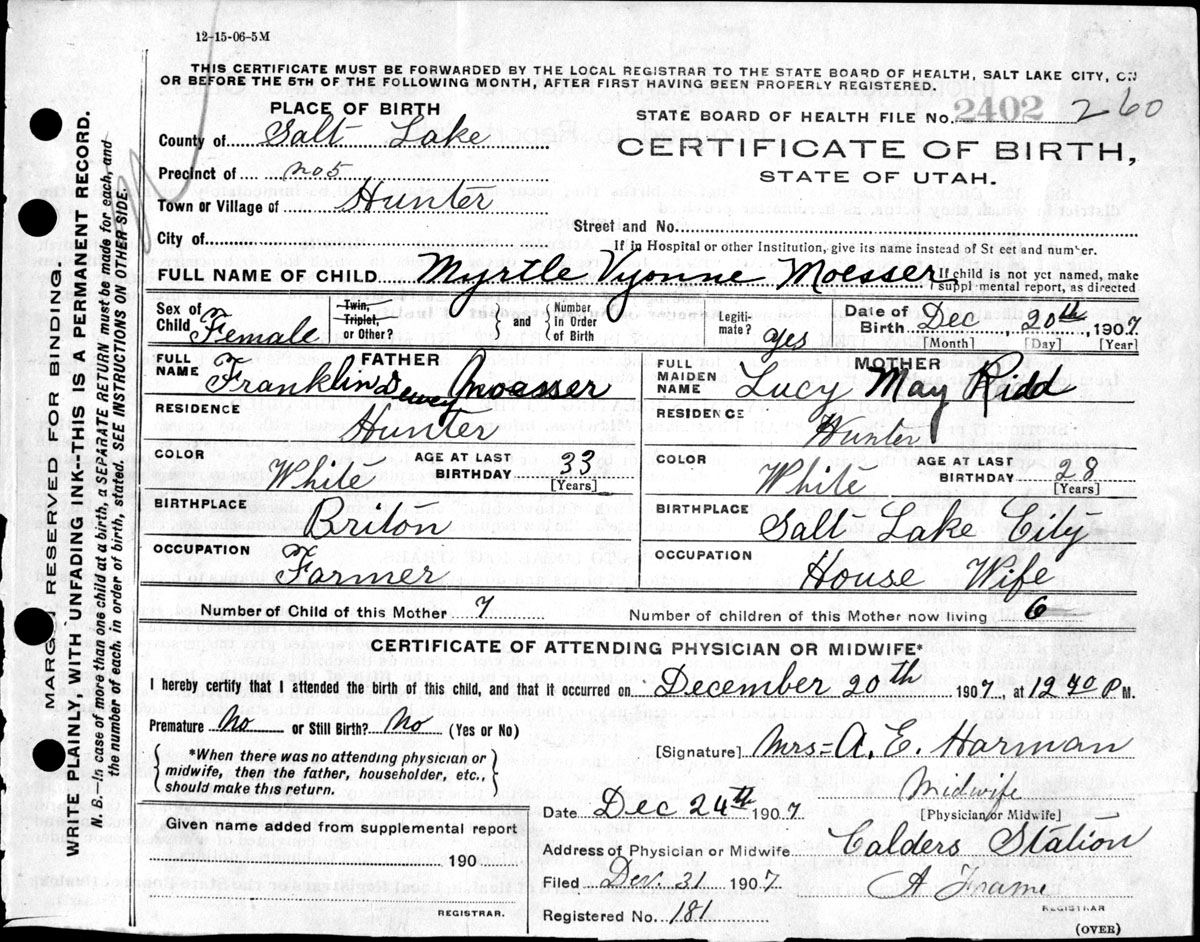 12-15-06-5M
THIS CERTIFICATE MUST BE FORWARDED BY THE LOCAL REGISTRAR TO THE STATE BOARD OF HEALTH, SALT LAKE CITY, ON
OR BEFORE THE 5TH OF THE FOLLOWING MONTH, AFTER FIRST HAVING BEEN PROPERLY REGISTERED.
PLACE OF BIRTH
STATE BOARD OF HEALTH FILE NO. 2402 260
County of Salt Lake
CERTIFICATE OF BIRTH,
STATE OF UTAH.
Precinct of No 5
Town or Village of Hunter
Street and No.
City of
If in Hospital or other Institution, give its name instead of St eet and number.
FULL NAME OF CHILD Myrtle Vyonne Moesser
If child is not yct named, make suppl mental report, as directed
Sex of Child Female
Twin, Triplet, or Other? and Number in Order of Birth
Legiti-mate? yes
Date of Birth Dec, 20th, 1907
[Month] [Day] [Year]
FULL NAME FATHER Franklin Dewey Moesser
FULL MAIDEN NAME MOTHER Lucy May Ridd
RESIDENCE Hunter
RESIDENCE Hunter
COLOR White AGE AT LAST BIRTHDAY 33 [Years]
COLOR White AGE AT LAST BIRTHDAY 28 [Years]
BIRTHPLACE Briton
BIRTHPLACE Salt Lake City
OCCUPATION Farmer
OCCUPATION House Wife
Number of Child of this Mother 7
Number of children of this Mother now living 6
CERTIFICATE OF ATTENDING PHYSICIAN OR MIDWIFE*
I hereby certify that I attended the birth of this child, and that it occurred on December 20th 1907, at 12 40 P M.
Premature No or Still Birth? No (Yes or No)
*When there was no attending physician or
midwife, then the father, householder, etc.,
should make this return.
[Signature] Mrs = A. E. Harman
Midwife
[Physician or Midwife]
Date Dec 24th 1907
Given name added from supplemental report
190
REGISTRAR.
Address of Physician or Midwife Calders Station
Filed Dec 31 1907
A Frame
REGISTRAR
Registered No. 181
(OVER)
MARGIN RESERVED FOR BINDING.
WRITE PLAINLY, WITH UNFADING INK--THIS IS A PERMANENT RECORD.
N. B.--In case of more than one child at a birth, a SEPARATE RETURN must be made for each, and
the number of each, in order of birth, stated. SEE INSTRUCTIONS ON OTHER SIDE.